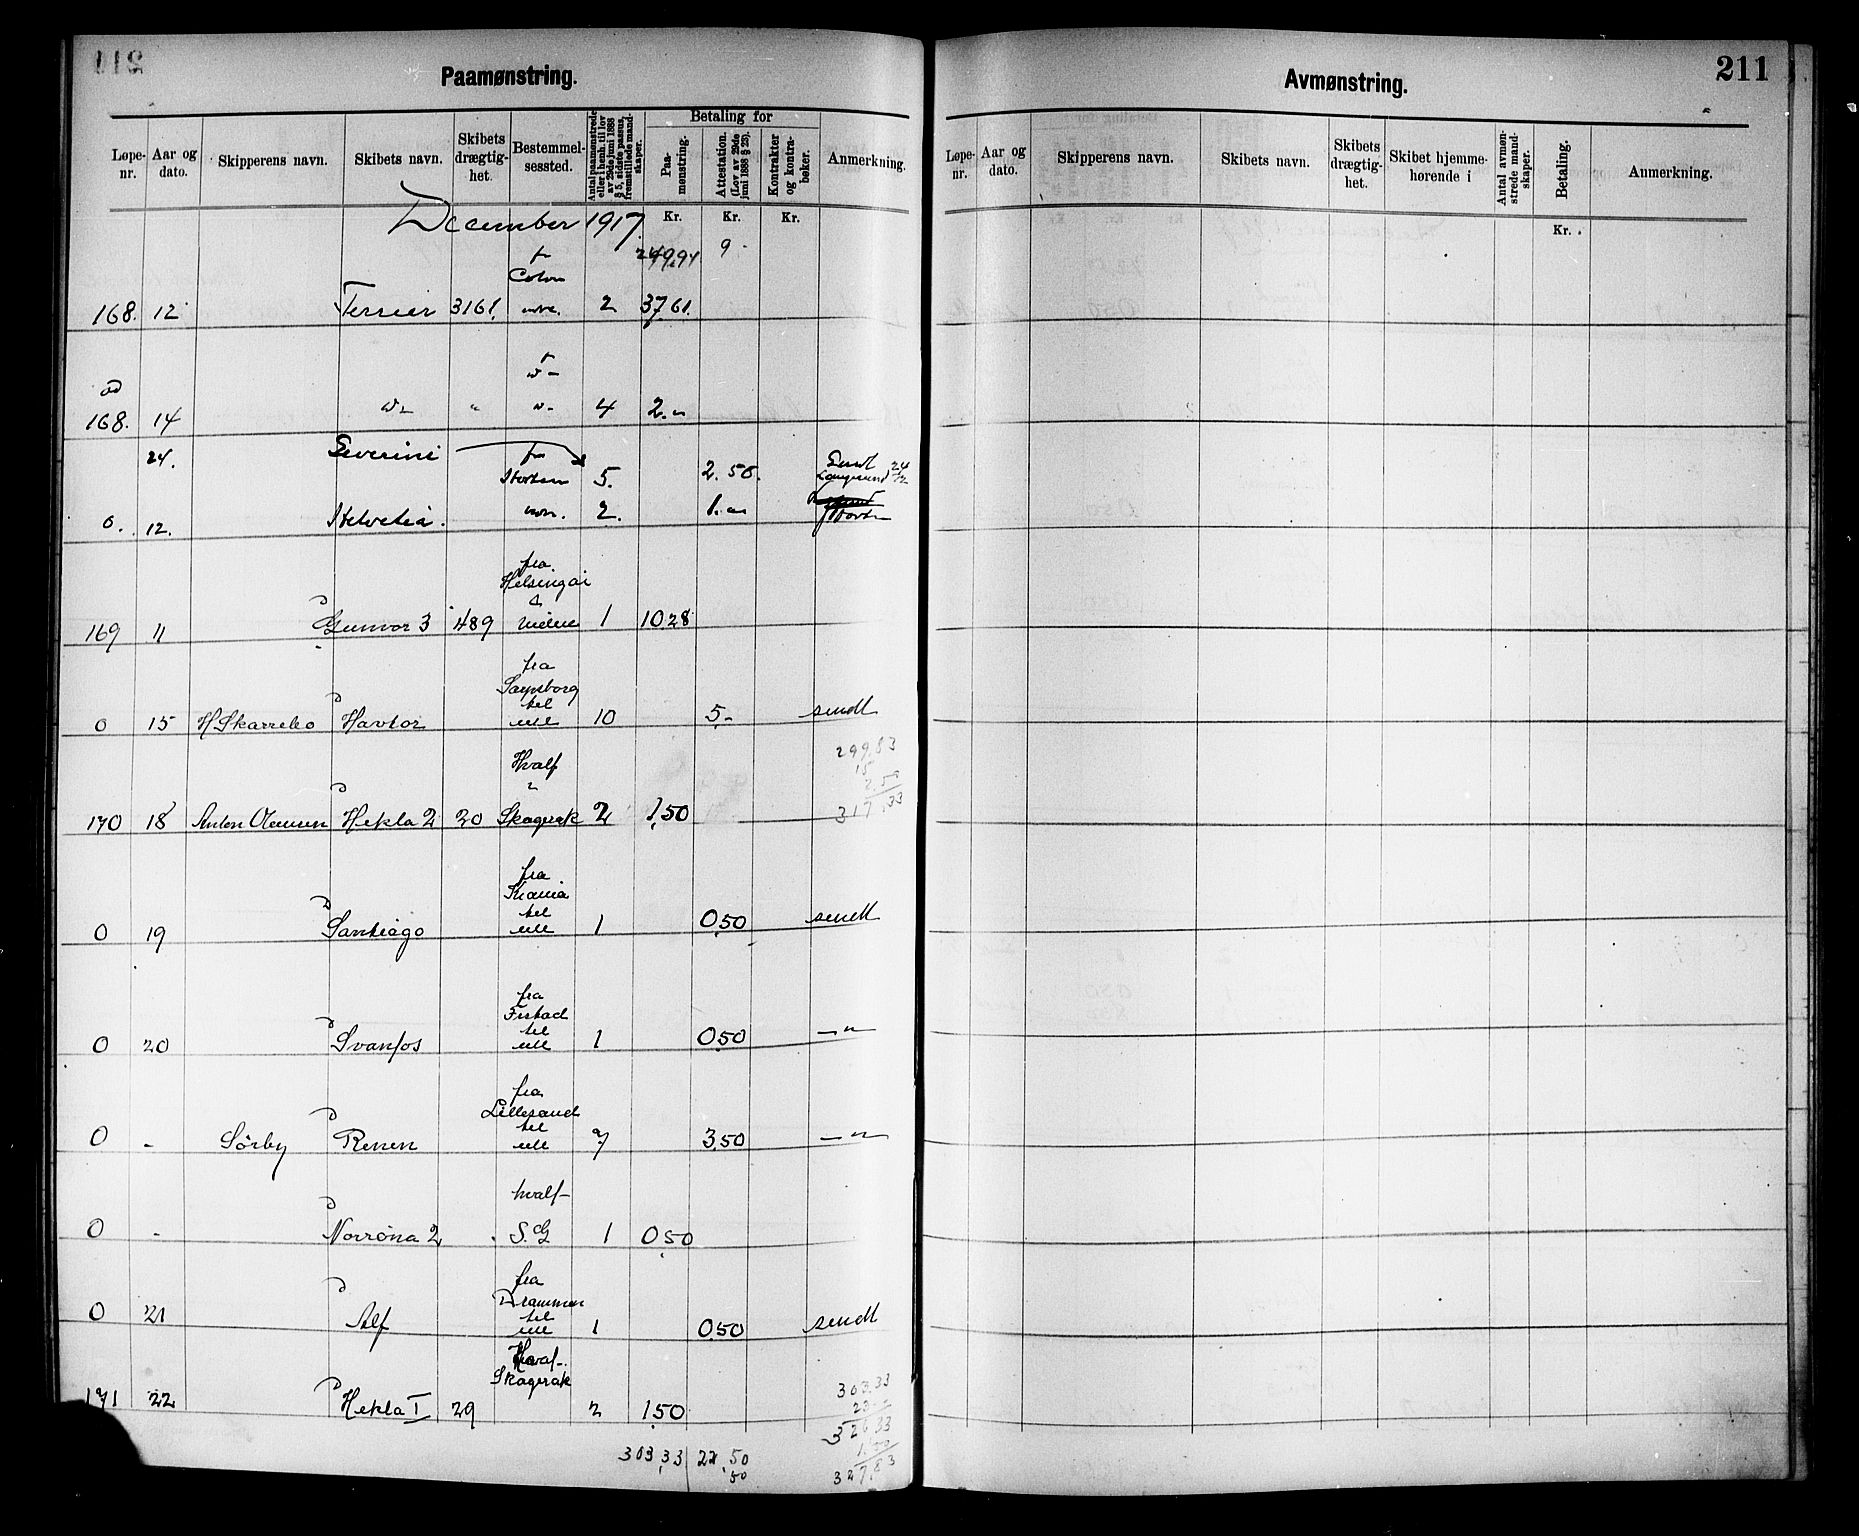 211
Paamønstring.
Løpe-nr. Aar og dato. Skipperens navn. Skibets navn. Skibets drægtighet. Bestemmelsessted. Antal paamønstrede eller i henh. til lov av 29de juni 1888 § 5, sidste passus, fremstillede mandskaper. Betaling for Paamønstring. Attestation. (Lov av 29de juni 1888 § 23). Kontrakter og kontrabøker. Anmerkning.
December 1917. Kr. Kr. Kr.
249,94 9-
fr Colon
168. 12 Terrier 3161. 2 37,61.
168. 14 4 2.
24. Severini fra 5. 2.50. Sendt Langesund 24/12
0. 12. Helvetia. 2. 1.
fra Helsingør
169 11 Gunvor 3 489 1 10,28
fra Sarpsborg til
0 15 H Skarrebo Havtor ude 10 5.- sendt
Hvalf 299,83
15
2.50
170 18 Anton Olaussen Hekla 2 20 Skagerak 2 1,50 317,33
fra Krania til
0 19 Santiago ude 1 0,50 sendt
fra Frstad til
0 20 Svanfos ude 1 0,50 —"—
fra Lillesand til
0 - Sörby Renen ude 7 3,50 —"—
hvalf-
0 - Norröna 2 S.G 1 0,50
fra Drammen til
0 21 Alf ude 1 0,50 sendt
Hvalf-
Skagerak
171 22 Hekla I 29 2 1,50
303,33 22,50
50
303,33
326,33
1,50
327,83
Avmønstring.
211
Løpe-nr. Aar og dato. Skipperens navn. Skibets navn. Skibets drægtighet. Skibet hjemmehørende i Antal avmønstrede mandskaper. Betaling. Anmerkning.
Kr.